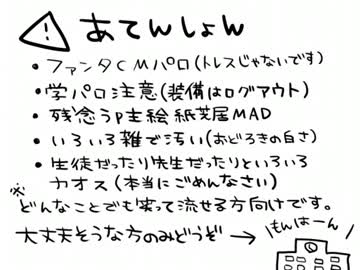 あてんしょん
・ファンタCMパロ(トレスじゃないです)
・学パロ注意(装備はログアウト)
・残念うp主絵紙芝居MAD
・いろいろ雑で汚い(おどろきの白さ)
・生徒だったり先生だったりといろいろ
カオス(本当にごめんなさい)
※どんなことでも笑って流せる方向けです。
大丈夫そうな方のみどうぞ→
\もんはーん/